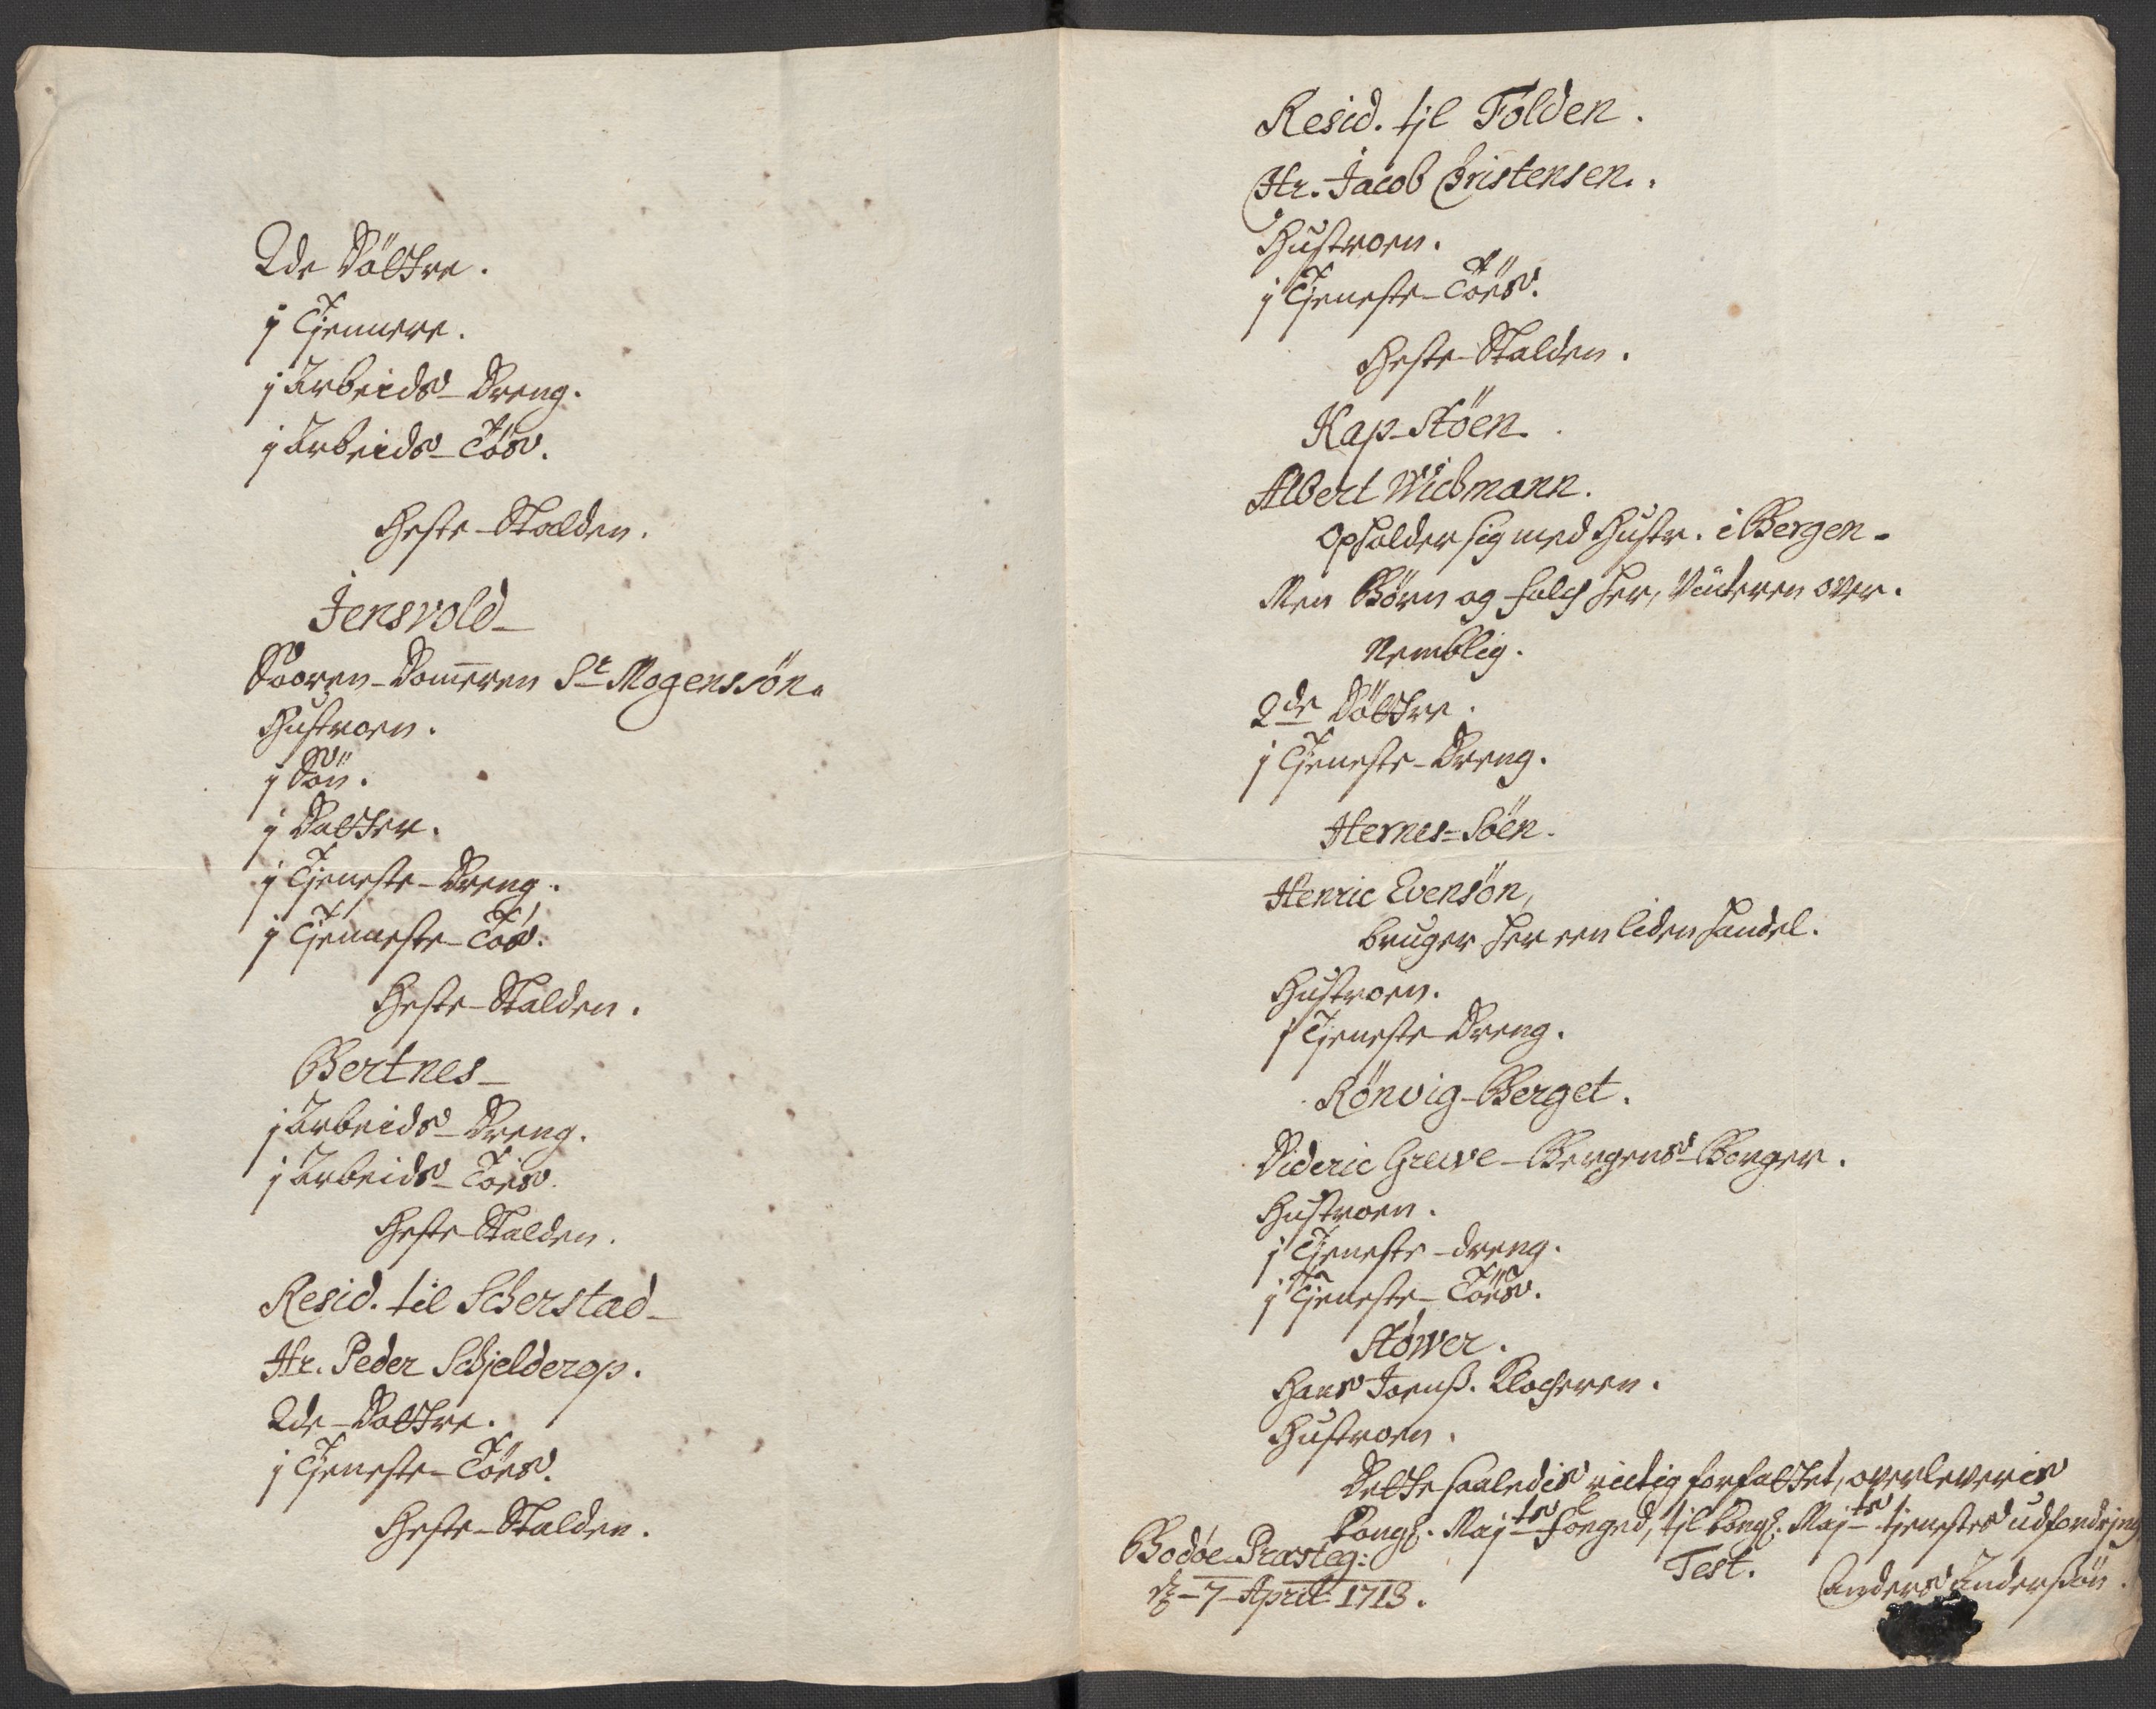 2de Döttre.
j Tjennere.
j Arbeids-Dreng.
j Arbeids-Tös.
Heste-Stalden.
Jensvold_
Sooren-Dom̅eren Sr Mogenssön.
Hustroen.
j Sön.
j Datter.
j Tjeneste-Dreng.
j Tjenneste-Tös.
Heste-Stalden.
Bertnes_
j Arbeids-Dreng.
j Arbeids-Töes.
Heste-Stalden.
Resid. til Scherstad_
Hr. Peder Schjelderop.
2de-Dottre.
j Tjeneste-Töes.
Heste-Stalden.
Resid. til Folden.
Hr. Jacob Christensen.
Hustroen.
j Tjeneste-Töes.
Heste-Stalden.
Kap-Stöen.
Albert Wichmann.
Opholder sig med Hustr. i Bergen-
Men Börn og folch her, Vinteren over.
Nemblig.
2de Döttre.
j Tjeneste-Dreng.
Hernes-Söen.
Henric Evensön,
bruger her een liden handel.
Hustroen.
j Tjeneste-Dreng.
Rönvig-Berget.
Dideric Greve-Bergens-Borger.
Hustroen.
j Tjeneste-dreng.
j Tjeneste-Töes.
Stöwer.
Hans Joenß. Klocheren.
Hustroen.
Dette saaledis rictig forfattet, overleveris
Kongl. Majts foeged, til kongl. Majts tjenestes udfordring
Test.
Bodöe-Præsteg:
d. -7-April 1713.
Anders Anderssön.